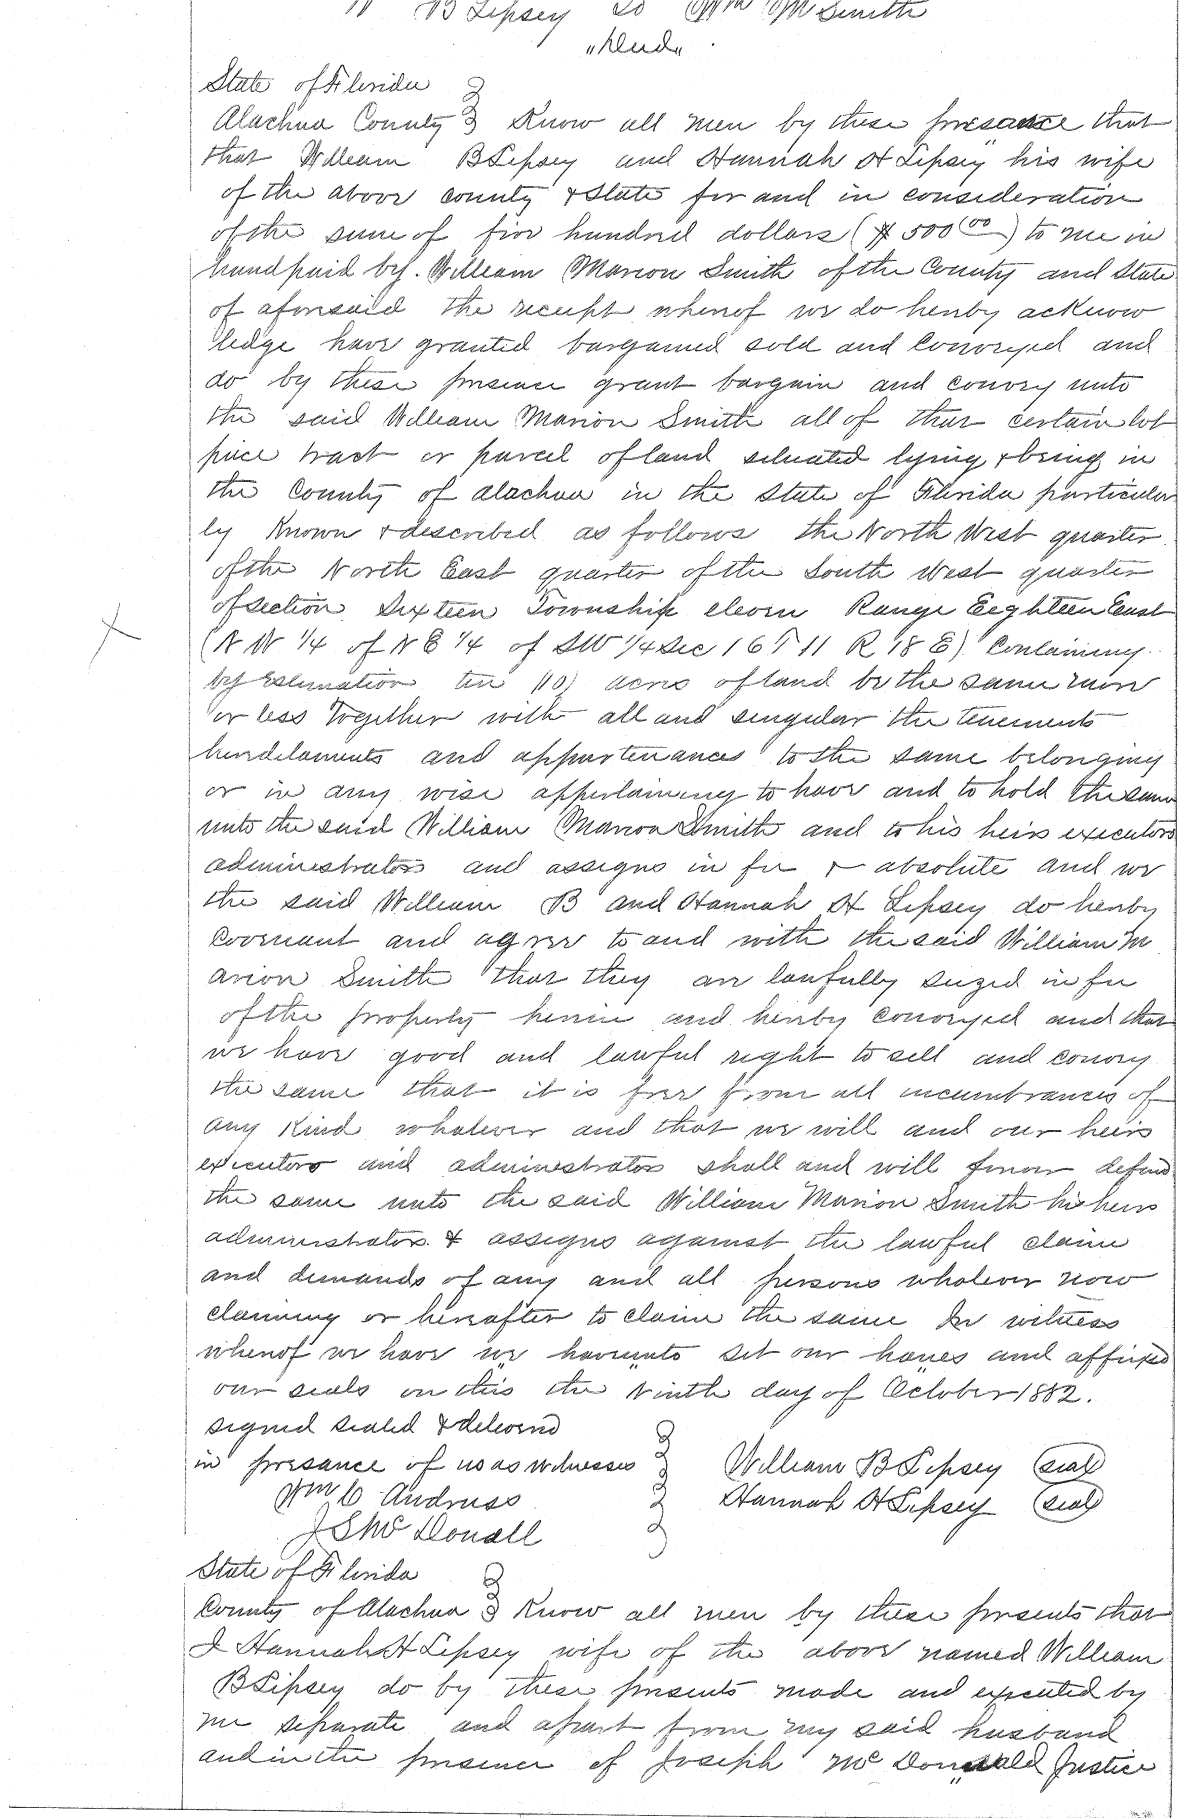 W B Lipsey to Wm M Smith
"Deed"
State of Florida
Alachua County Know all men by these presance that
that William B Lipsey and Hannah H Lipsey his wife
of the above county & State for and in consideration
of the sum of five hundred dollars ($500.00) to me in
hand paid by. William Marion Smith of the County and State
of aforesaid the receipt whereof we do hereby acknow
ledge have granted bargained sold and conveyed and
do by these presence grant bargain and convey unto
the said William Marion Smith all of that certain lot
piece tract or parcel of land situated lying & being in
the County of Alachua in the State of Florida particular
ly Known & described as follows the North West quarter
of the North East quarter of the South West quarter
of section Sixteen Township eleven Range Eeghteen East
(N W 1/4 of N E 1/4 of SW 1/4 Sec 16 T 11 R 18 E) Containing
by Estimation ten (10) acres of land be the same more
or less together with all and singular the tenements
heredilaments and appurtenances to the same belonging
or in any wise appertaining to have and to hold the same
unto the said William Marion Smith and to his heirs executors
administrators and assigns in fee & absolute and we
the said William B and Hannah H Lipsey do hereby
covenant and agree to and with the said William M
arion Smith that they are lawfully seized in fee
of the property herein and hereby conveyed and that
we have good and lawful right to sell and convey
the same that it is free from all incumbrances of
any Kind whatever and that we will and our heirs
executors and administrators shall and will forever defend
the same unto the said William Marion Smith his heirs
administrators & assigns against the lawful claim
and demands of any and all persons whatever now
claiming or hereafter to claim the same In witness
whereof we have we hereunto set our hanes and affixed
our seals on this the Ninth day of October 1882.
signed sealed & delivered
in presance of us as witnesses William B Lipsey (seal)
Wm C Andruss Hannah H Lipsey (seal)
J S Mc Donall
State of Florida
County of Alachua Know all men by these presents that
I Hannah H Lipsey wife of the above named William
B Lipsey do by these presents made and executed by
me separate and apart from my said husband
and in the presence of Joseph Mc Donald Justice